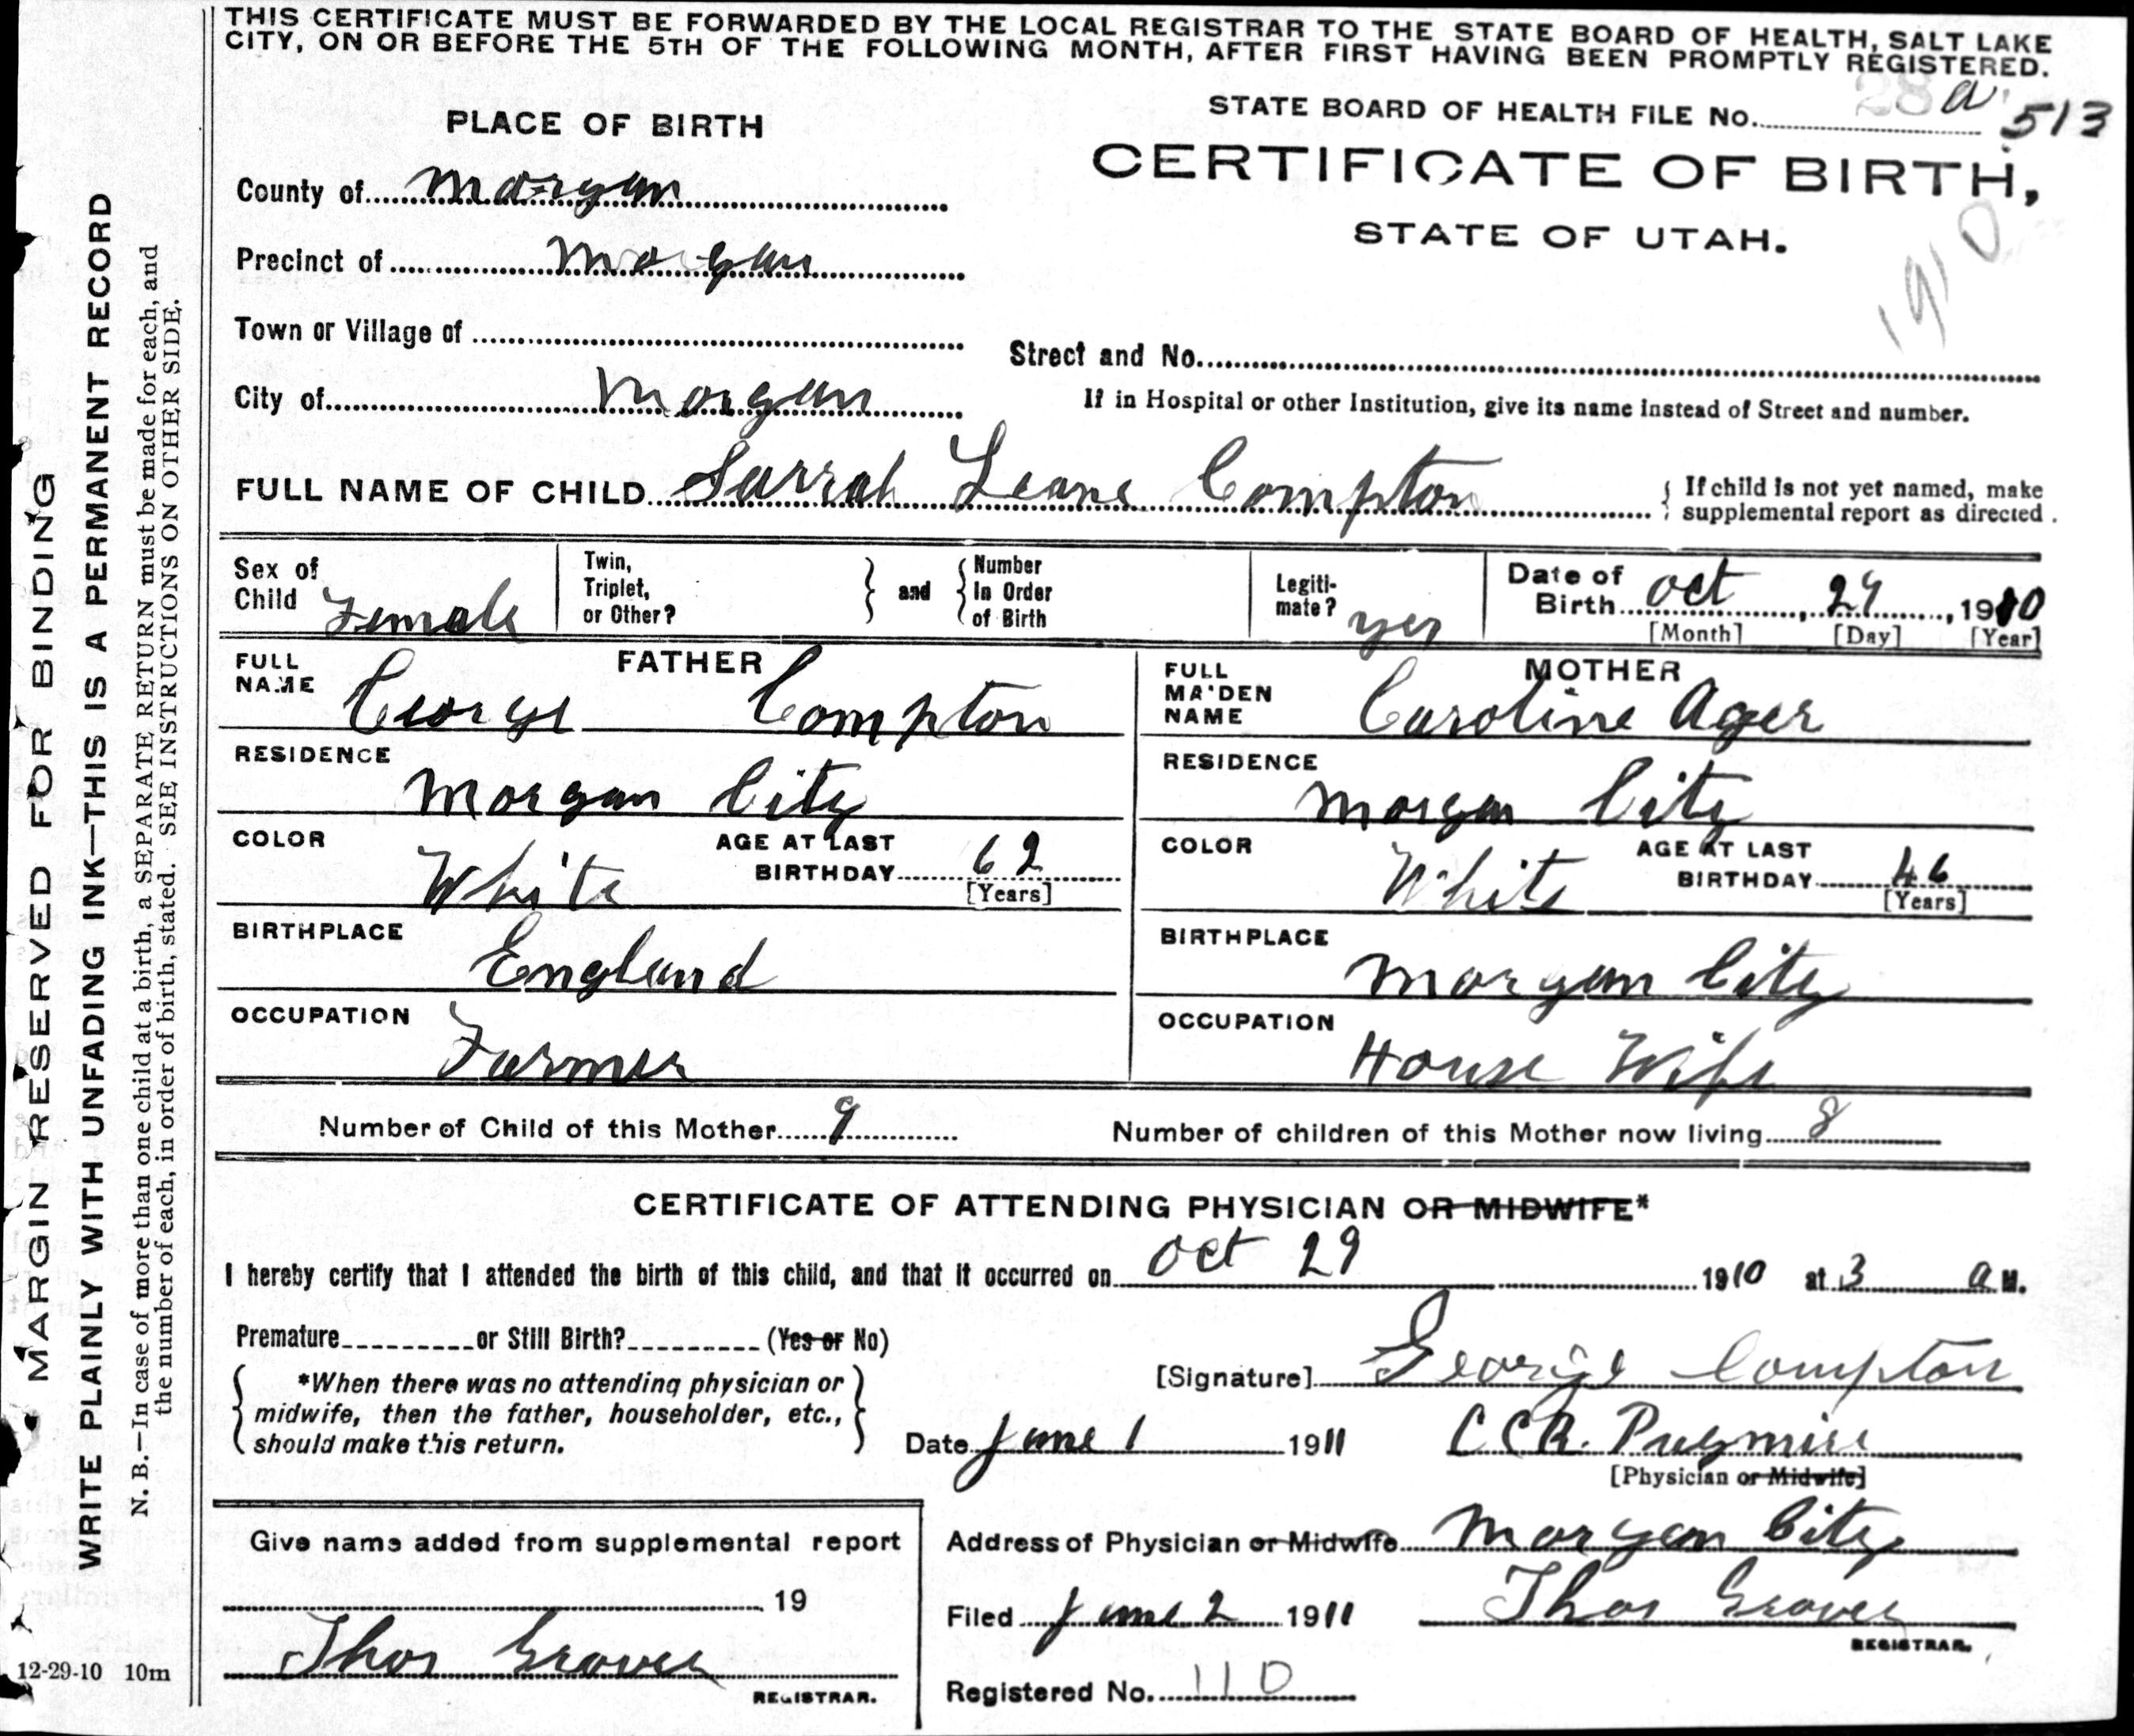 THIS CERTIFICATE MUST BE FORWARDED BY THE LOCAL REGISTRAR TO THE STATE BOARD OF HEALTH, SALT LAKE
CITY, ON OR BEFORE THE 5TH OF THE FOLLOWING MONTH, AFTER FIRST HAVING BEEN PROMPTLY REGISTERED.
STATE BOARD OF HEALTH FILE No. 28 a 513
PLACE OF BIRTH
CERTIFICATE OF BIRTH,
STATE OF UTAH.
1910
County of Morgan
Precinct of Morgan
Town or Village of
Street and No.
City of Morgan
If in Hospital or other Institution, give its name instead of Street and number.
FULL NAME OF CHILD Sarrah Leane Compton
If child is not yet named, make
supplemental report as directed.
Sex of
Child Female
Twin,
Triplet,
or Other?
and
Number
In Order
of Birth
Legiti-
mate? yes
Date of
Birth Oct, 29, 1910
[Month] [Day] [Year]
FATHER
FULL
NAME George Compton
RESIDENCE Morgan City
COLOR White
AGE AT LAST
BIRTHDAY 62
[Years]
BIRTHPLACE England
OCCUPATION Farmer
MOTHER
FULL
MAIDEN
NAME Caroline Ager
RESIDENCE Morgan City
COLOR White
AGE AT LAST
BIRTHDAY 46
[Years]
BIRTHPLACE Morgan City
OCCUPATION House Wife
Number of Child of this Mother 9
Number of children of this Mother now living 8
CERTIFICATE OF ATTENDING PHYSICIAN OR MIDWIFE*
I hereby certify that I attended the birth of this child, and that it occurred on Oct 29 1910 at 3 a M.
Premature or Still Birth? (Yes or No)
*When there was no attending physician or
midwife, then the father, householder, etc.,
should make this return.
[Signature] George Compton
Date June 1 1911
C C R. Pugmire
[Physician or Midwife]
Give name added from supplemental report
19
Thos Grover
REGISTRAR.
Address of Physician or Midwife Morgan City
Filed June 2 1911
Thos Grover
REGISTRAR.
Registered No. 110
MARGIN RESERVED FOR BINDING
WRITE PLAINLY WITH UNFADING INK—THIS IS A PERMANENT RECORD
N. B.—In case of more than one child at a birth, a SEPARATE RETURN must be made for each, and
the number of each, in order of birth, stated. SEE INSTRUCTIONS ON OTHER SIDE.
12-29-10 10m